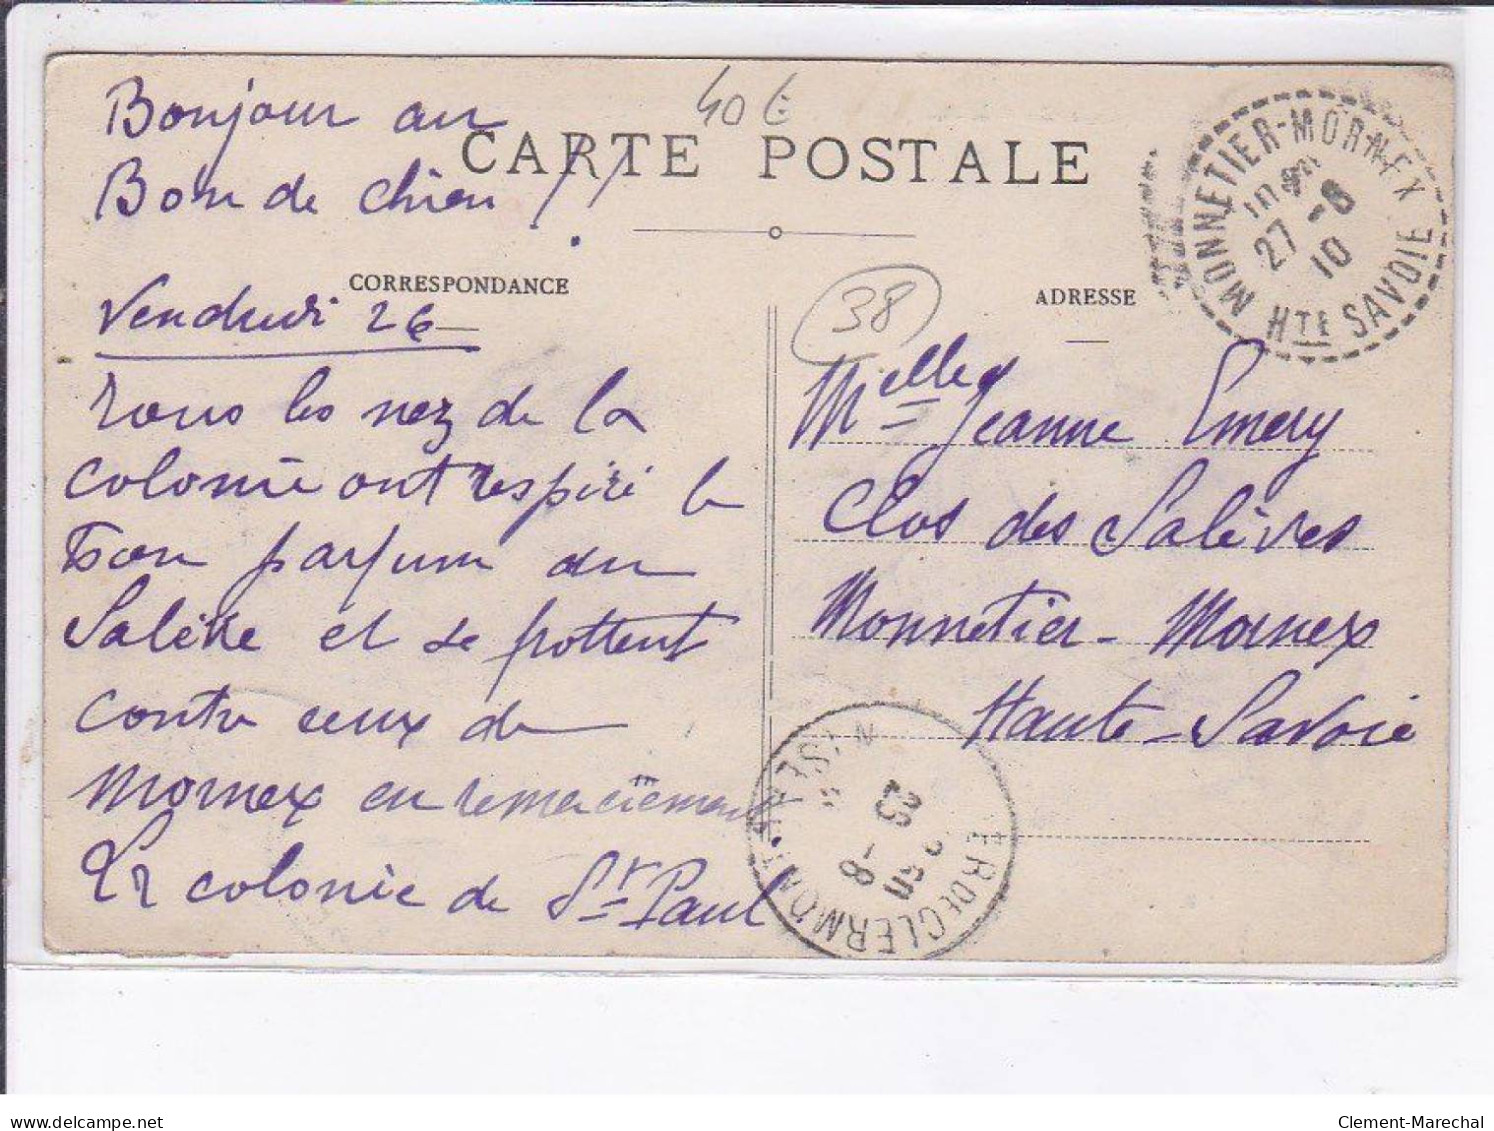 40 €
Bonjour au
CARTE POSTALE
Bon de chien !!
MONNETIER-MORNEX
27 -8
10
HTE SAVOIE
CORRESPONDANCE
ADRESSE
38
Vendredi 26
Melle Jeanne Emery
Tous les nez de la
colonie ont respiré le
Clos des Salèves
bon parfum du
Monnetier - Mornex
Salève et se frottent
Haute - Savoie
contre ceux de
Mornex en remerciement
La colonie de St Paul
25
-8
ER DE CLERMONT